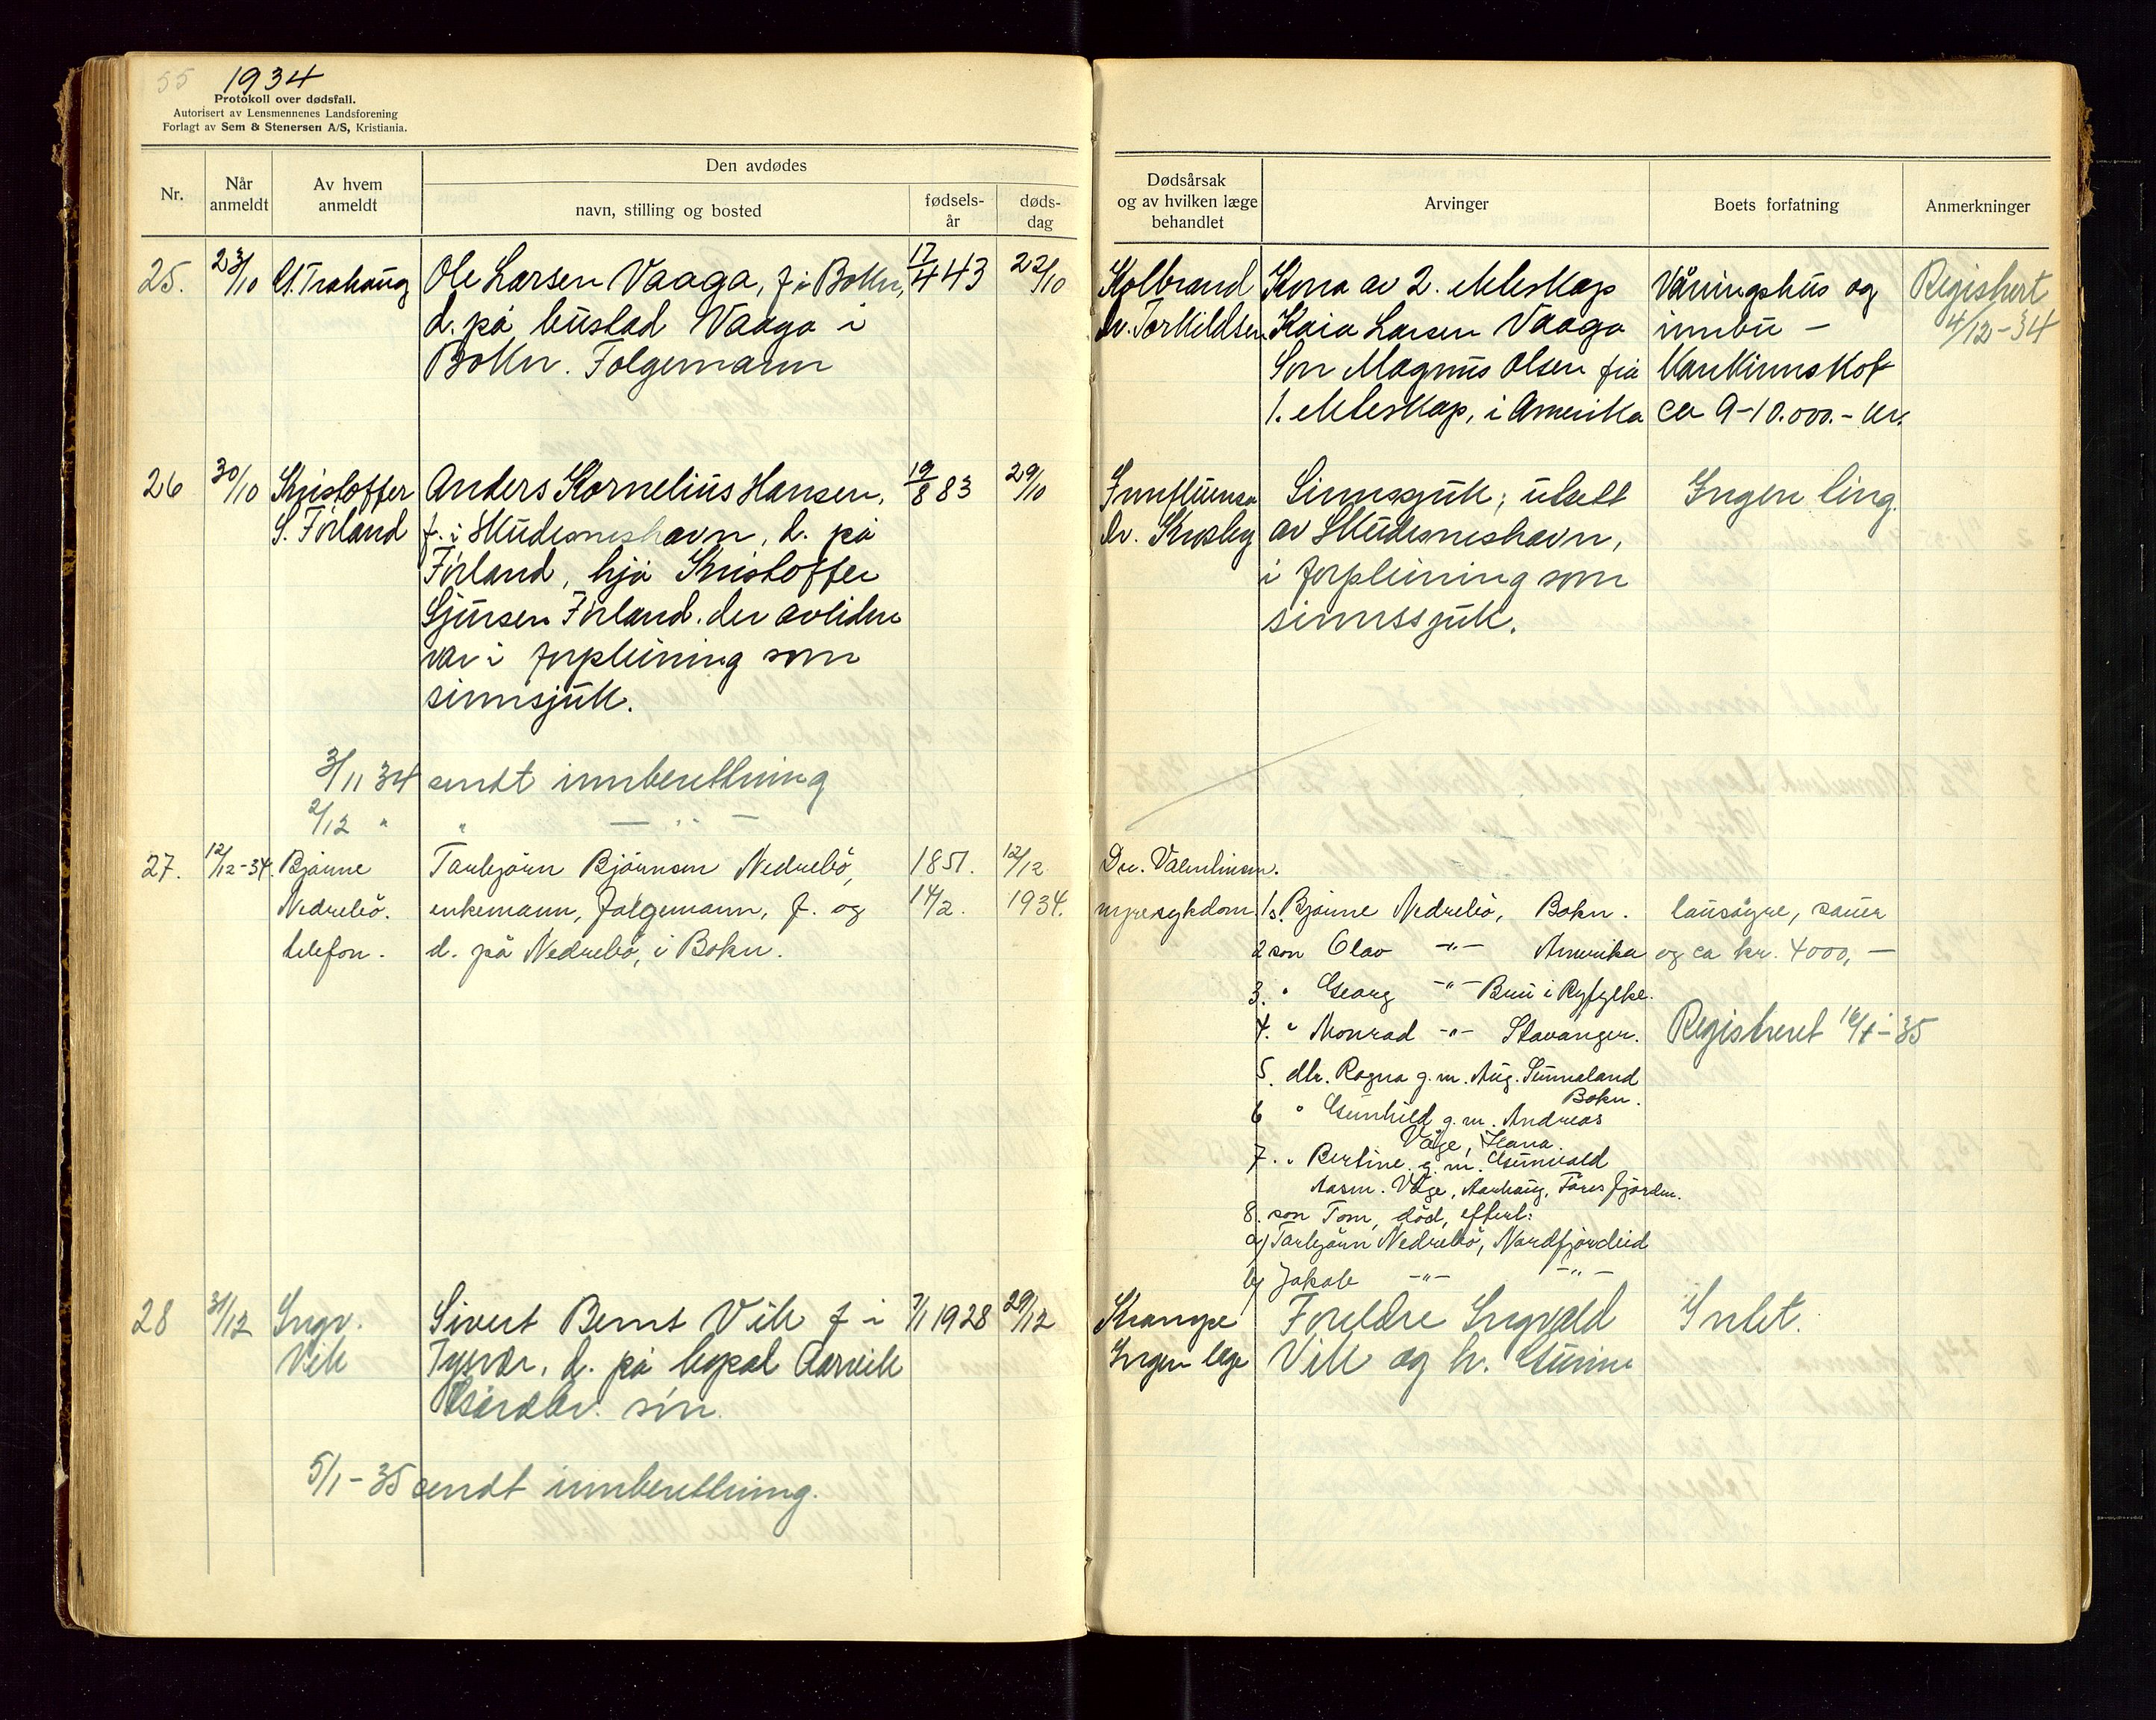 55 1934
Protokoll over dødsfall.
Autorisert av Lensmennenes Landsforening
Forlagt av Sem & Stenersen A/S, Kristiania.
Nr.
Når anmeldt
Av hvem anmeldt
Den avdødes
navn, stilling og bosted
fødsels-år
døds-dag
Dødsårsak og av hvilken læge behandlet
Arvinger
Boets forfatning
Anmerkninger
25. 23/10
Ole Larsen Vaaga, f i Bokn, 17/4 43 22/10
d. på bustad Vaaga i
Bokn. Folgemann
Kolbrand
dr. Torkildsen
Kona av 2. ekteskap
Kaia Larsen Vaaga
Son Magnus Olsen frå
1. ekteskap, i Amerika
Våningshus og
innbu -
Bankinnskot
ca 9-10.000.- kr.
Registrert
4/12-34
26 30/10 Kristoffer
S. Förland
Anders Kornelius Hansen, 19/8 83 29/10
f. i Skudesneshavn, d. på
Förland, hjå Kristoffer
Sjursen Förland. der avlidne
var i forpleining som
sinnsjuk.
Innfluensa
dr. Krosby
Sinnssjuk; utsett
av Skudesneshavn,
i forpleining som
sinnssjuk.
Ingen ting.
3/11 34 sendt innberettning
2/12 " " — " —
27. 12/12-34. Bjarne
Nedrebö.
telefon.
Torbjörn Björnsen Nedrebö, 1851. 12/12
enkemann, folgemann, f. og 14/2. 1934.
d. på Nedrebö, i Bokn.
Dr. Valentinsen.
nyresykdom
1 s. Bjarne Nedrebö, Bokn.
2 son Olav -"- Amerika
3. " Georg -"- Bru i Ryfylke.
4. " Monrad -"- Stavanger.
5. dtr. Ragna g. m. Aug. Sunnaland
Bokn.
6 " Gunhild g. m. Andreas
Våge, Hana.
7. " Bertine g. m. Gunvald
Aasm. Våge, Aarhaug, Töresfjorden.
8. son Tom, död, efterl:
a) Torbjörn Nedrebö, Nordfjordeid
b) Jakob -"- -"-
lausöyre, sauer
og ca kr. 4000,-
28 31/12 Ingv.
Vik
Sivert Bernt Vik f i 7/1 1928 29/12
Tysvær, d. på bopæl Aarvik
Gårdbr. sön.
Krampe
Ingen læge
Foreldre Ingvald
Vik og h. Gurine
Intet.
5/1-35 sendt innberettning.